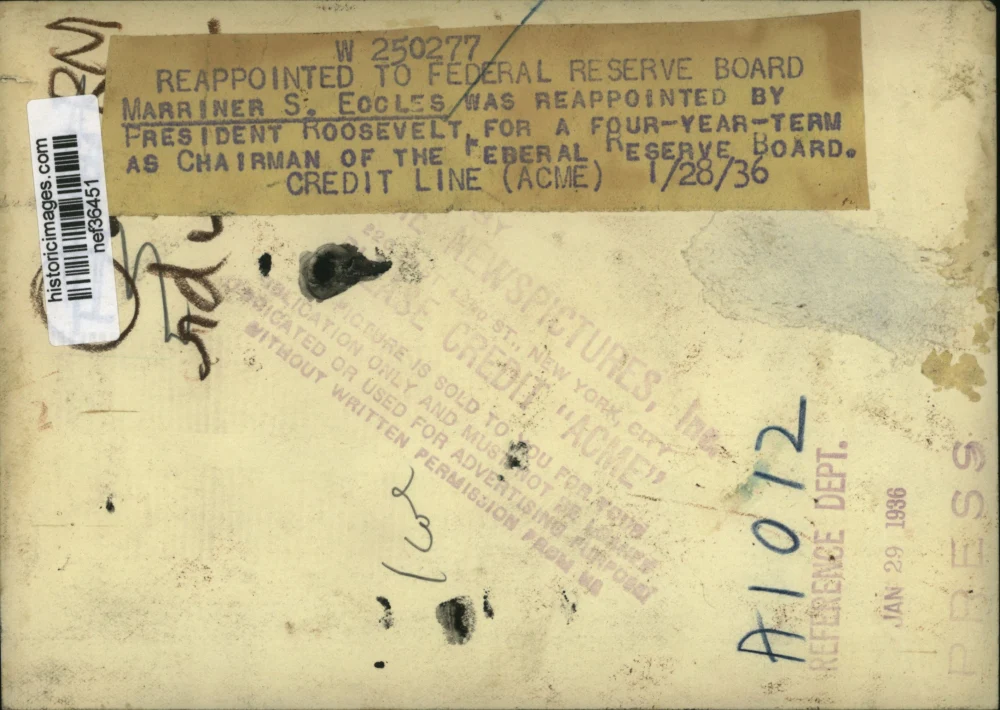 W 250277
REAPPOINTED TO FEDERAL RESERVE BOARD
MARRINER S. ECCLES WAS REAPPOINTED BY
PRESIDENT ROOSEVELT, FOR A FOUR-YEAR-TERM
AS CHAIRMAN OF THE FEBERAL RESERVE BOARD.
CREDIT LINE (ACME) 1/28/36
historicimages.com
nef36451
NEWSPICTURES, Inc.
42ND ST., NEW YORK, CITY
CREDIT "ACME"
PICTURE IS SOLD TO YOU FOR
PUBLICATION ONLY AND MUST NOT BE
OR USED FOR ADVERTISING PURPOSES
WITHOUT WRITTEN PERMISSION FROM US
A1012
REFERENCE DEPT.
JAN 29 1936
PRESS